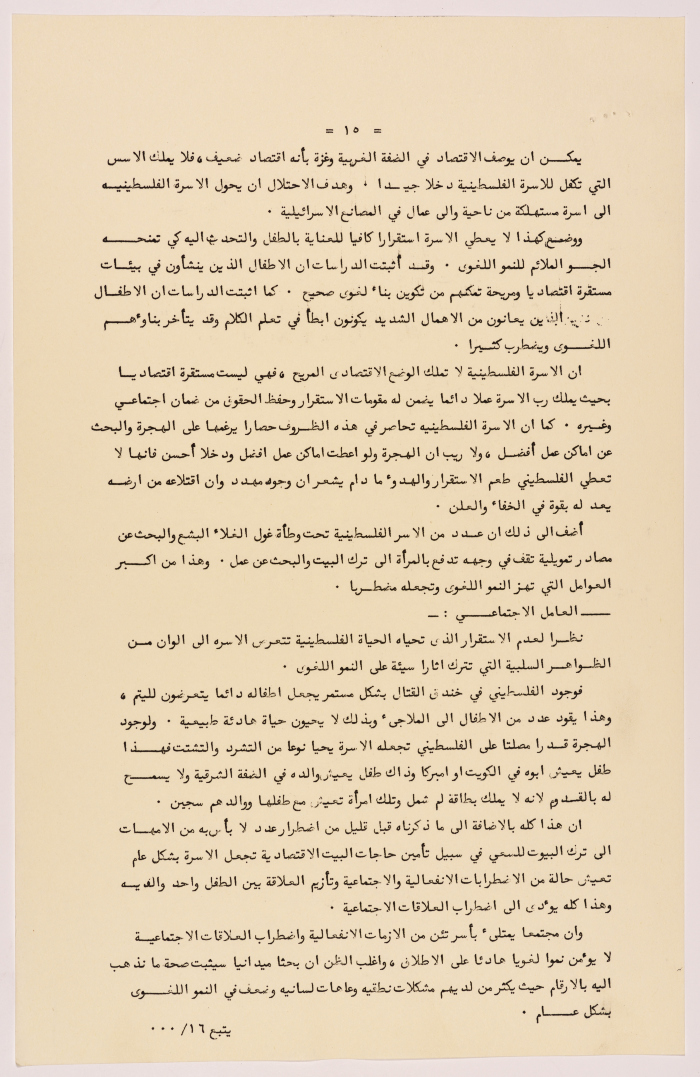 = ١٥ =
يمكـــن ان يوصف الاقتصاد في الضفة الغربية وغزة بأنه اقتصاد ضعيف، فلا يملك الاسس
التي تكفل للاسرة الفلسطينية دخلا جيـــدا ، وهدف الاحتلال ان يحول الاسرة الفلسطينيـه
الى اسرة مستهلكة من ناحية والى عمال في المصانع الاسرائيلية .
ووضع كهذا لا يعطي الاسرة استقرارا كافيا للعناية بالطفل والتحدث اليه كي تمنحـــه
الجـــو الملائم للنمو اللغوى . وقـد أثبتت الدراسات ان الاطفال الذين ينشأون في بيئـات
مستقرة اقتصاديا ومريحة تمكنهم من تكوين بناء لغوى صحيح . كما اثبتت الدراسات ان الاطفـــال
الذين يعانون من الاهمال الشديد يكونون ابطأ في تعلم الكلام وقد يتأخر بناوءهـــم
اللغـــوى ويضطرب كثـيرا .
ان الاسرة الفلسطينية لا تملك الوضع الاقتصادى المريح ، فهي ليست مستقرة اقتصاديـــا
بحيث يملك رب الاسرة عملا دائما يضمن له مقومات الاستقرار وحفظ الحقوق من ضمان اجتماعـــي
وغيره . كما ان الاسرة الفلسطينيه تحاصر في هذه الظـروف حصارا يرغمها على الهجرة والبحث
عن اماكن عمل أفضـل ، ولا ريب ان الهجرة ولو اعطت اماكن عمل افضل ودخلا أحسن فانها لا
تعطي الفلسطيني طعم الاستقرار والهدوء ما دام يشعر ان وجوده مهدد وان اقتلاعه من ارضـه
يعد له بقوة في الخفاء والعلن .
أضف الى ذلك ان عـدد من الاسر الفلسطينية تحت وطأة غول الغلاء البشع والبحث عن
مصادر تمويلية تقف في وجهه تدفع بالمرأة الى ترك البيت والبحث عن عمل . وهذا من اكـــبر
العوامل التي تهـز النمو اللغوى وتجعله مضطـربا .
ـــــ العامل الاجتماعـــــي : ـ
نظـرا لعدم الاستقرار الذى تحياه الحياة الفلسطينية تتعرض الاسره الى الوان مــن
الظـواهـر السلبية التي تترك اثارا سيئة على النمو اللغوى .
فوجود الفلسطيني في خندق القتال بشكل مستمر يجعل اطفاله دائما يتعرضون لليتم ،
وهذا يقود عدد من الاطفال الى الملاجىء وبذلك لا يحيون حياة هادئة طبيعية . ولوجود
الهجرة قـدرا مصلتا على الفلسطيني تجعله الاسرة يحيا نوعا من التشرد والتشتت فهـــذا
طفل يعيش ابوه في الكويت او امريكا وذاك طفل يعيش والده في الضفة الشرقية ولا يسمـــح
له بالقـدوم لانه لا يملك بطاقة لم شمل وتلك امرأة تعيش مع طفلها ووالدهم سجين .
ان هذا كله بالاضافة الى ما ذكرناه قبل قليل من اضطرار عدد لا بأس به من الامهـات
الى ترك البيوت للسعي في سبيل تأمين حاجات البيت الاقتصادية تجعل الاسرة بشكل عام
تعيش حالة من الاضطرابات الانفعالية والاجتماعية وتأزيم العلاقة بين الطفل واحد والديـــه
وهذا كله يوءدى الى اضطراب العلاقات الاجتماعية .
وان مجتمعا يمتلىء بأسر تئن من الازمات الانفعالية واضطراب العلاقات الاجتماعيـــة
لا يوءمن نموا لغويا هادئا على الاطلاق ، واغلب الظن ان بحثا ميدانيا سيثبت صحة ما نذهب
اليه بالارقام حيث يكثر من لديهم مشكلات نطقيه وعاهات لسانيه وضعف في النمو اللغـــوى
بشكل عـــــام .
يتبع ١٦/ ٠٠٠